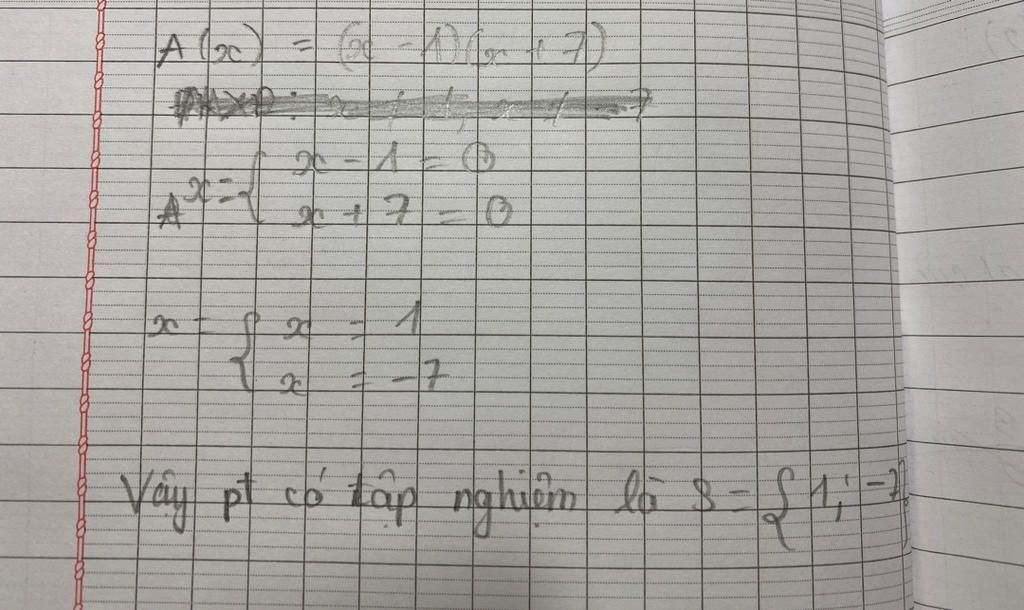 A(x) = (x - 1)(x + 7)
A x = { x - 1 = 0
x + 7 = 0
x = { x = 1
x = -7
Vậy pt có tập nghiệm là S = {1; -7}